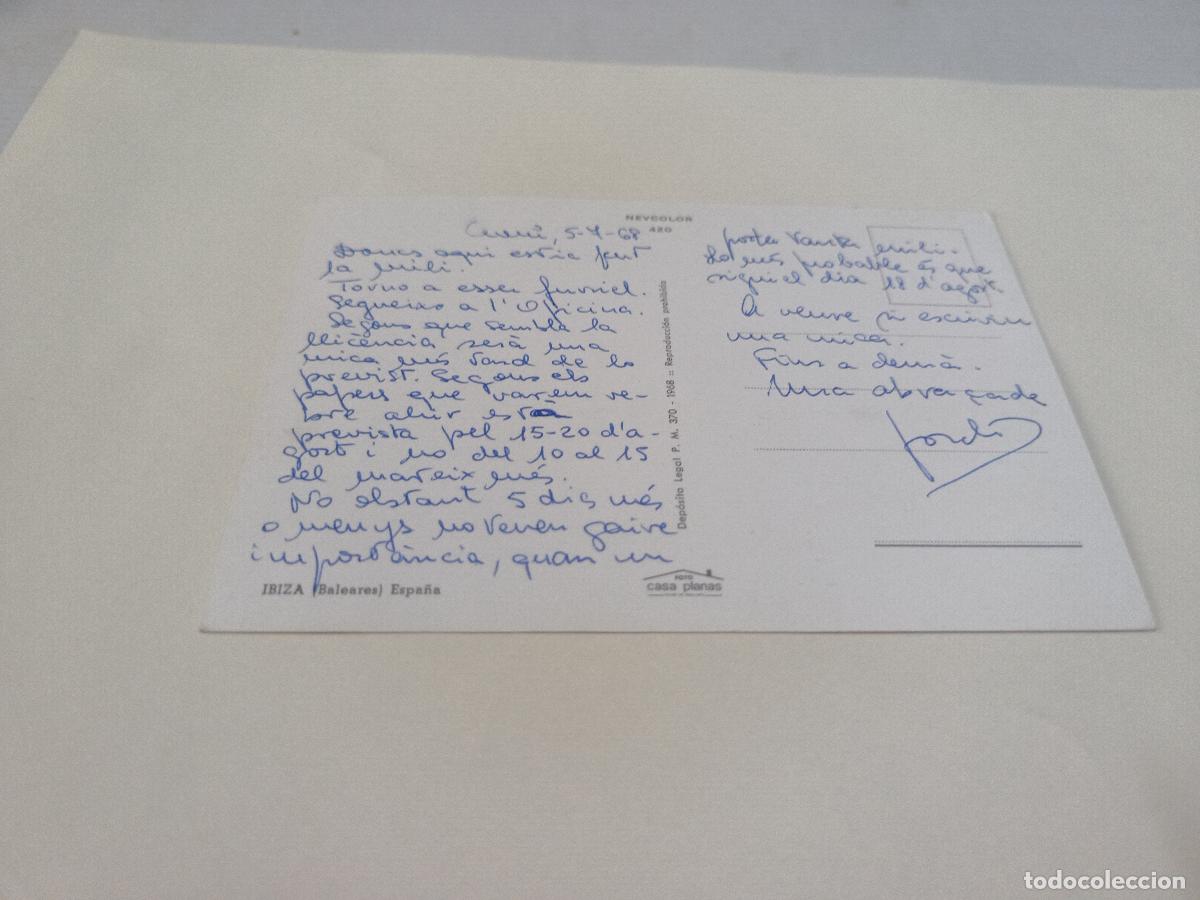 NEVCOLOR
420
5-7-68
Doncs aqui estic fent
la mili.
Torno a esser furriel.
Segueixo a l'Oficina.
Segons que sembla la
llicència serà una
mica més tard de lo
previst. Segons els
papers que varem re-
bre ahir està
prevista pel 15-20 d'a-
gost i no del 10 al 15
del mateix més.
No obstant 5 dies més
o menys no tenen gaire
importància, quan un
IBIZA (Baleares) España
Depósito Legal P. M. 370 - 1968 :: Reproducción prohibida
FOTO
casa planas
porta tanta mili.
Lo més probable és que
sigui el dia 18 d'agost.
A veure si escriviu
una mica.
Fins a demà.
Una abraçada
Jordi
todocoleccion